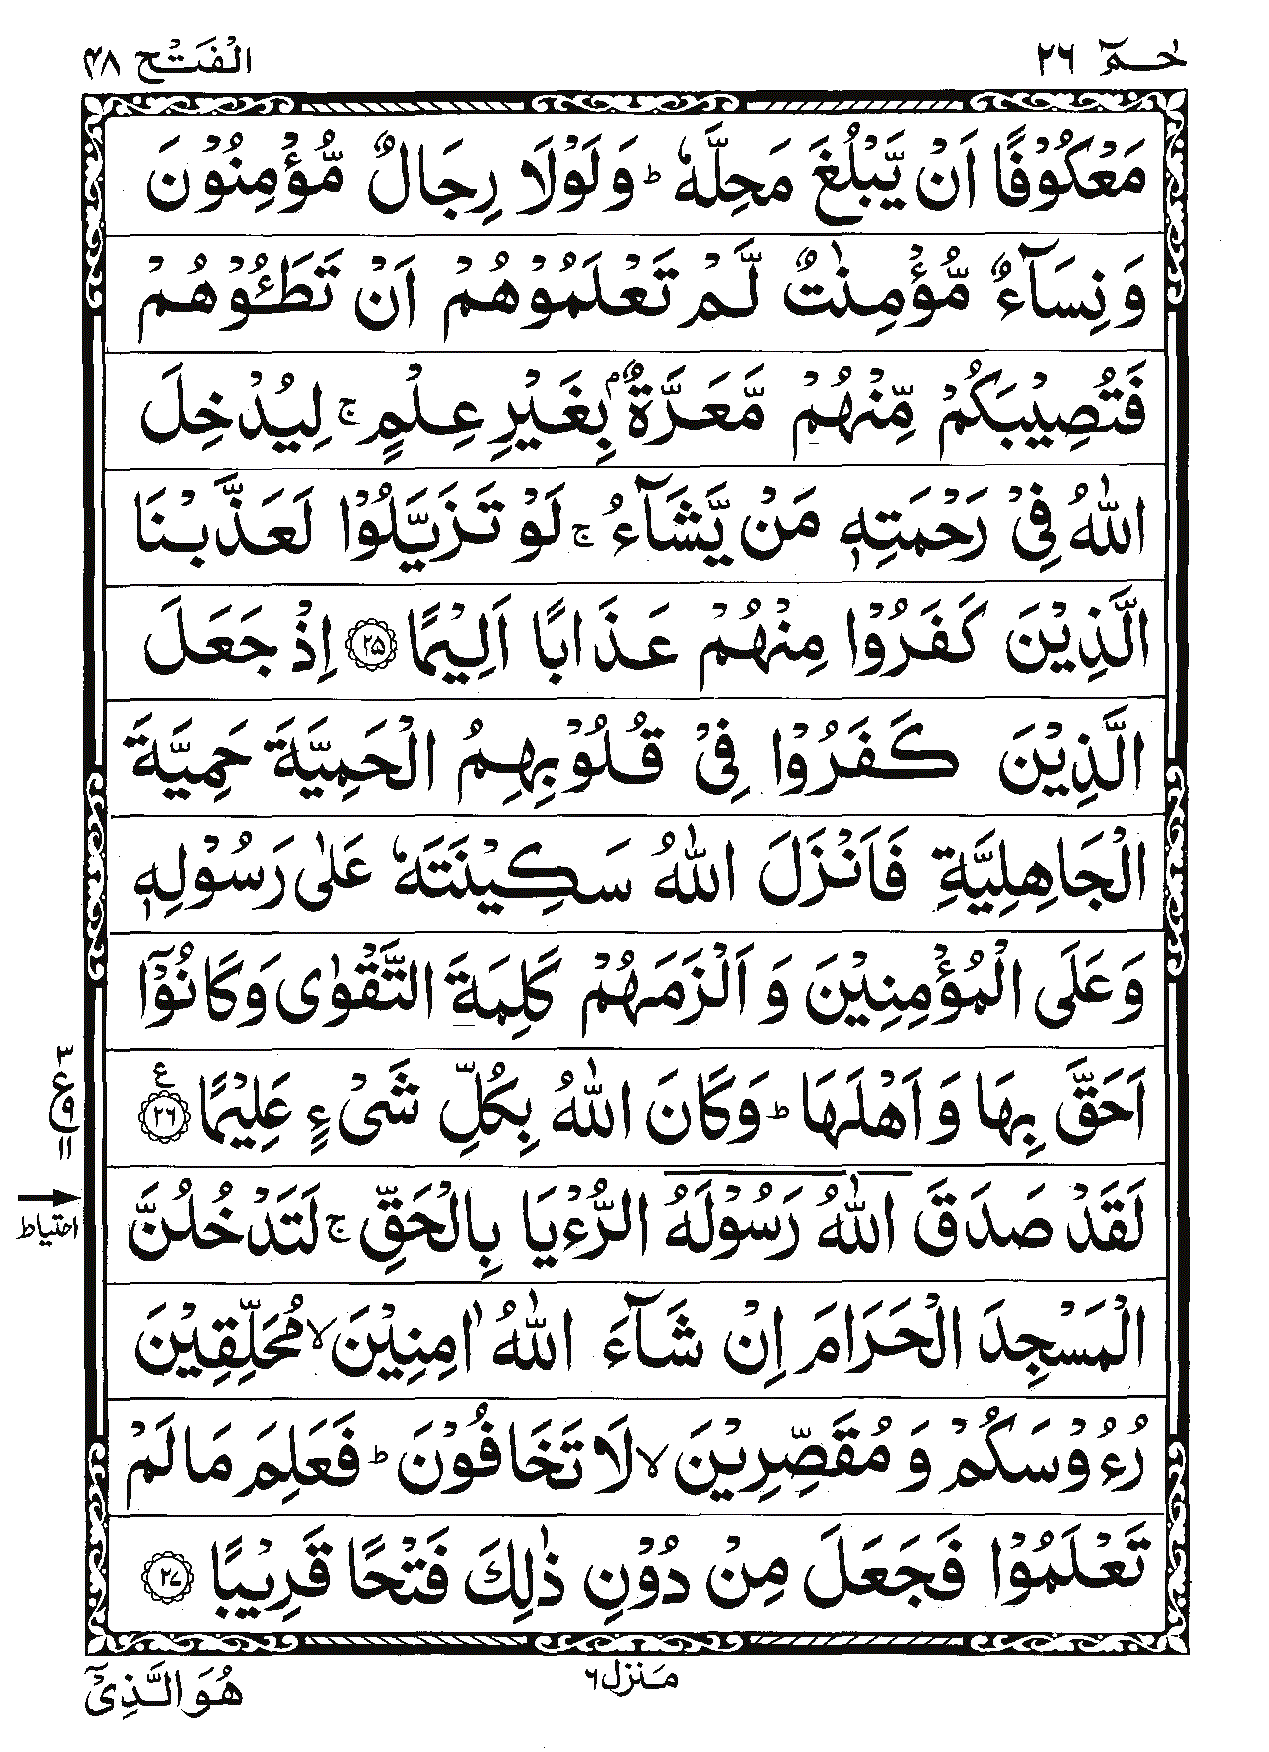 حٰمٓ ٢٦
الْفَتْح ٤٨
مَعْكُوْفًا اَنْ يَّبْلُغَ مَحِلَّهٗ ؕ وَلَوْلَا رِجَالٌ مُّؤْمِنُوْنَ
وَنِسَآءٌ مُّؤْمِنٰتٌ لَّمْ تَعْلَمُوْهُمْ اَنْ تَطَـُٔوْهُمْ
فَتُصِيْبَكُمْ مِّنْهُمْ مَّعَرَّةٌۢ بِغَيْرِ عِلْمٍ ۚ لِيُدْخِلَ
اللّٰهُ فِيْ رَحْمَتِهٖ مَنْ يَّشَآءُ ۚ لَوْ تَزَيَّلُوْا لَعَذَّبْنَا
الَّذِيْنَ كَفَرُوْا مِنْهُمْ عَذَابًا اَلِيْمًا ٢٥ اِذْ جَعَلَ
الَّذِيْنَ كَفَرُوْا فِيْ قُلُوْبِهِمُ الْحَمِيَّةَ حَمِيَّةَ
الْجَاهِلِيَّةِ فَاَنْزَلَ اللّٰهُ سَكِيْنَتَهٗ عَلٰى رَسُوْلِهٖ
وَعَلَى الْمُؤْمِنِيْنَ وَاَلْزَمَهُمْ كَلِمَةَ التَّقْوٰى وَكَانُوْٓا
اَحَقَّ بِهَا وَاَهْلَهَا ؕ وَكَانَ اللّٰهُ بِكُلِّ شَيْءٍ عَلِيْمًا ٢٦ ع
٣ ع ٩ ١١
لَقَدْ صَدَقَ اللّٰهُ رَسُوْلَهُ الرُّءْيَا بِالْحَقِّ ۚ لَتَدْخُلُنَّ
احتیاط
الْمَسْجِدَ الْحَرَامَ اِنْ شَآءَ اللّٰهُ اٰمِنِيْنَ ۙ مُحَلِّقِيْنَ
رُءُوْسَكُمْ وَمُقَصِّرِيْنَ ۙ لَا تَخَافُوْنَ ؕ فَعَلِمَ مَا لَمْ
تَعْلَمُوْا فَجَعَلَ مِنْ دُوْنِ ذٰلِكَ فَتْحًا قَرِيْبًا ٢٧
مَنزل ٦
هُوَ الَّذِيْٓ